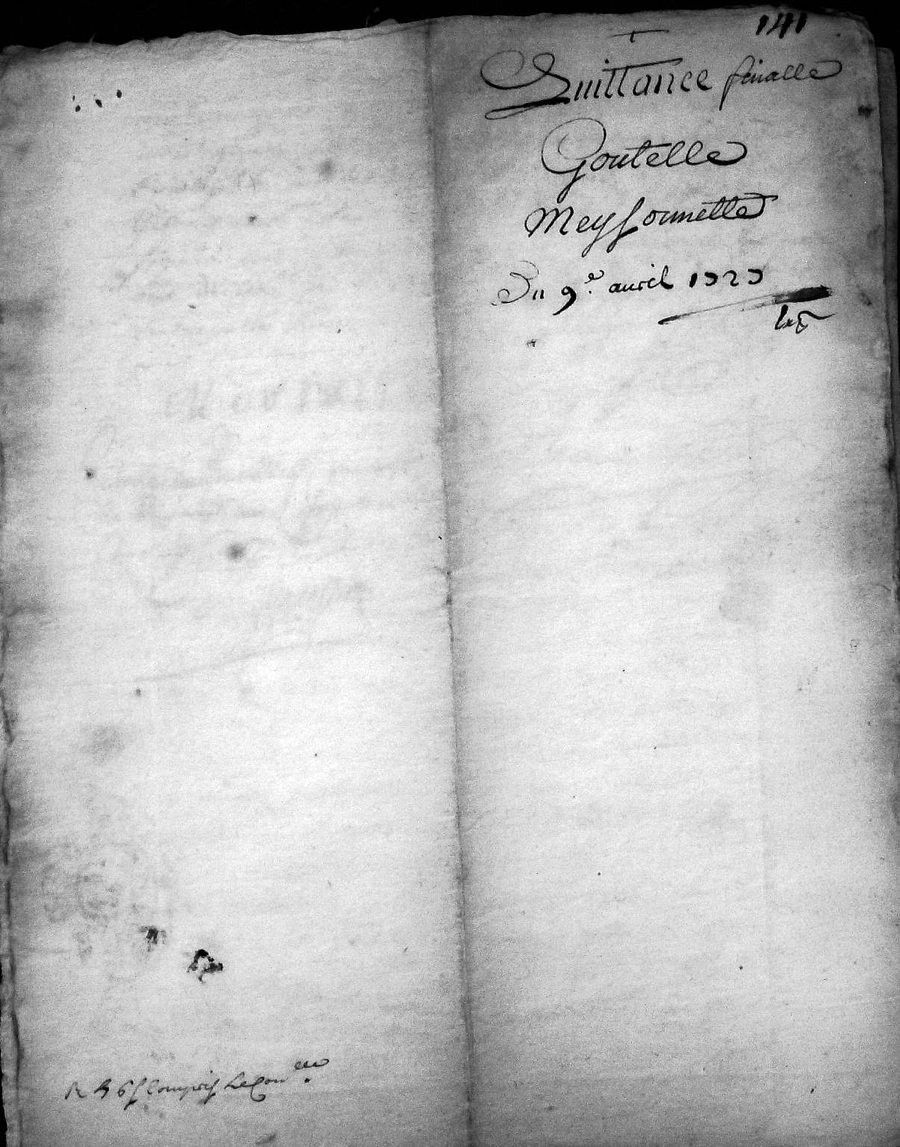 141
Quittance finalle
Goutelle
Meyssonnette
Du 9e. avril 1727
R 46s compris le Con.lle